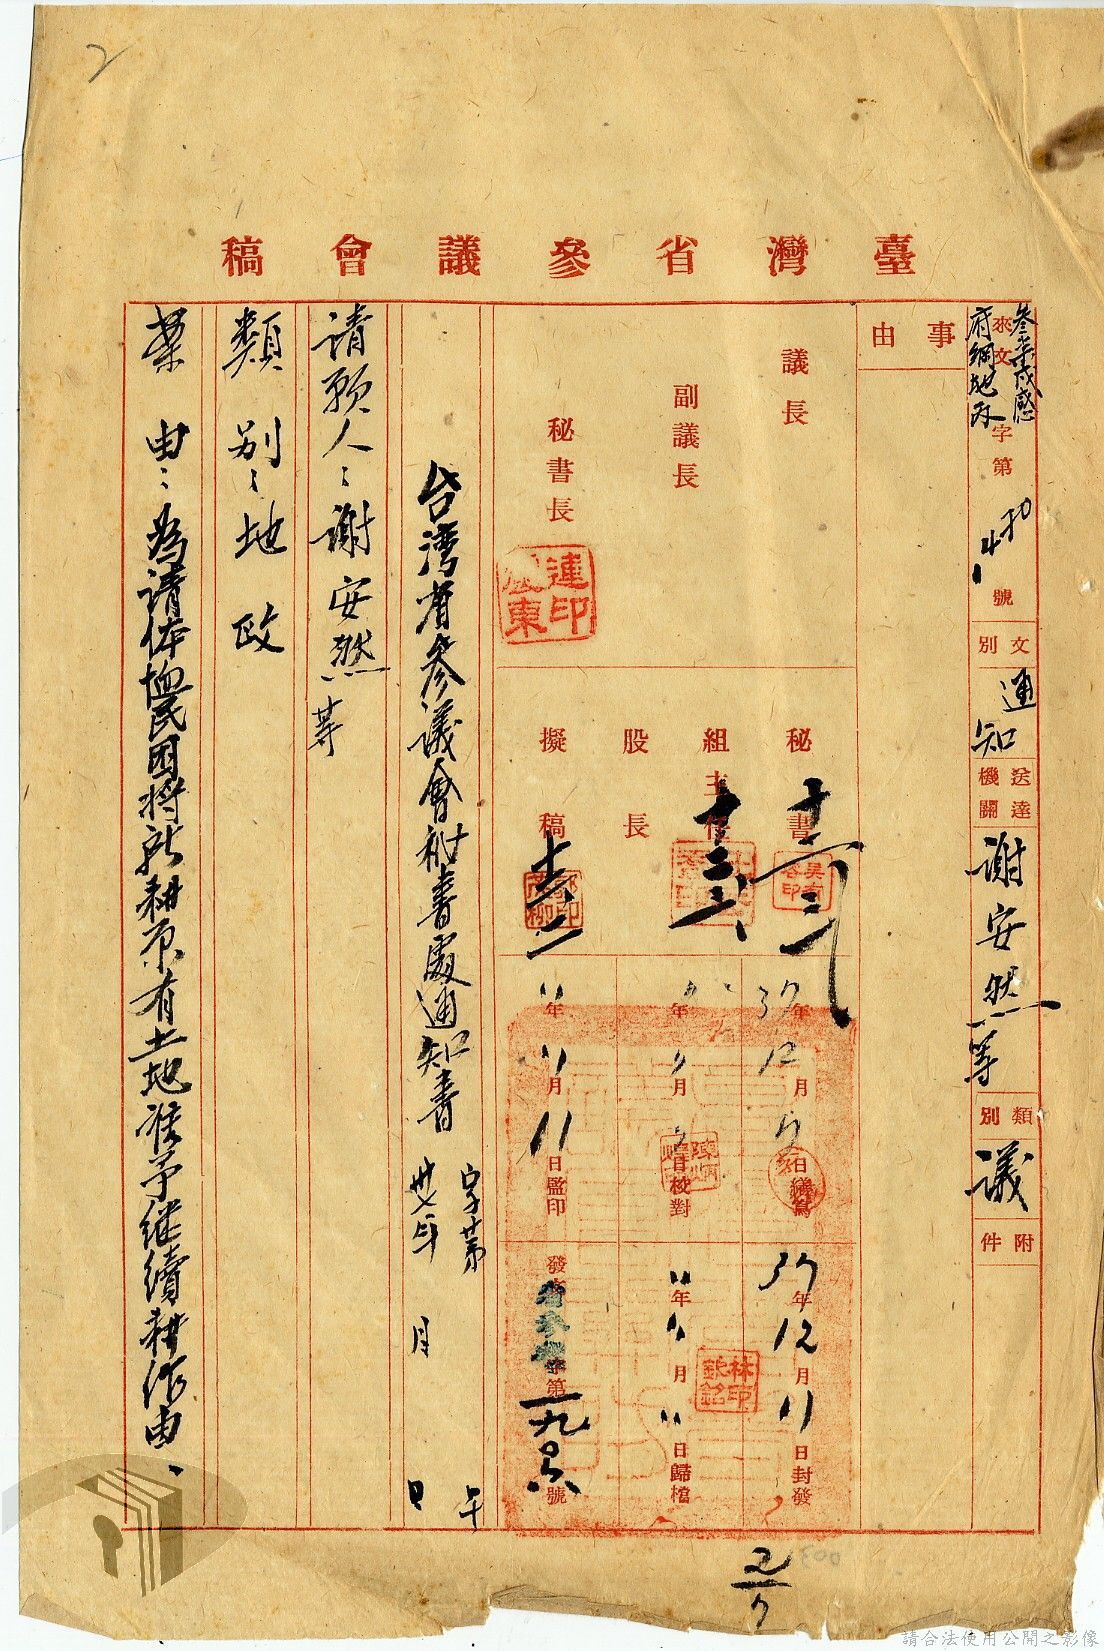 2
臺灣省參議會稿
來文
叁柒戌感
府綱地丙
字第
號
文別
通知
送達機關
謝安然等
類別
議
附件
事由
議長
副議長
秘書長
連印
東
秘書
組主任
股長
擬稿
十二
37年12月 日繕寫
年 月 日校對
年 月11日監印
37年12月11日封發
年 月 日歸檔
林印
欽銘
發文省參議字第一九 號
台灣省參議會秘書處通知書
字第
卅七年 月 日 午
請願人：謝安然等
類別：地政
案由：為請体恤民困將新耕原有土地准予继續耕作由、
2/7
請合法使用公開之影像